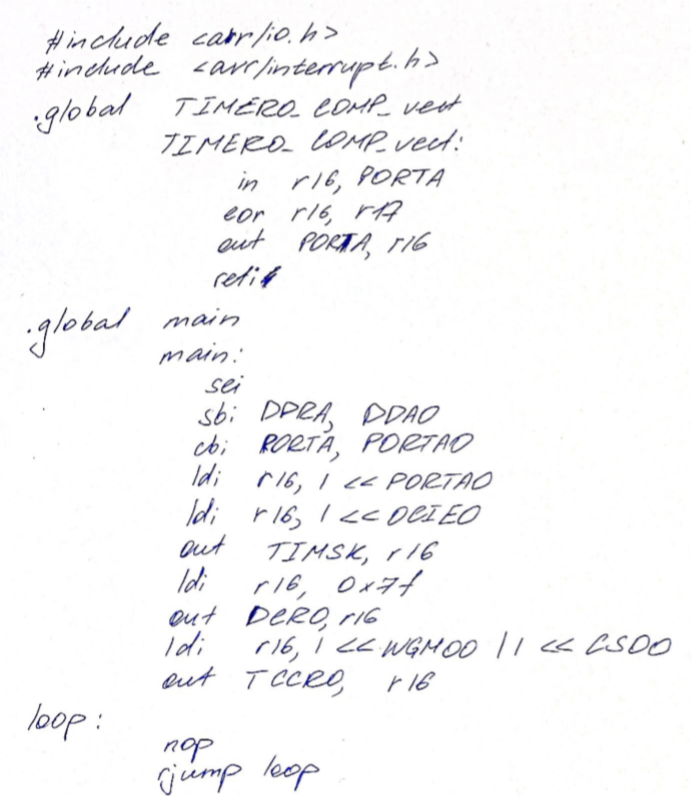 #include <avr/io.h>
#include <avr/interrupt.h>
.global TIMER0_COMP_vect
TIMER0_COMP_vect:
in r16, PORTA
eor r16, r17
out PORTA, r16
reti
.global main
main:
sei
sbi DDRA, DDA0
cbi PORTA, PORTA0
ldi r16, 1 << PORTA0
ldi r16, 1 << OCIE0
out TIMSK, r16
ldi r16, 0x7f
out OCR0, r16
ldi r16, 1 << WGM00 | 1 << CS00
out TCCR0, r16
loop:
nop
rjump loop